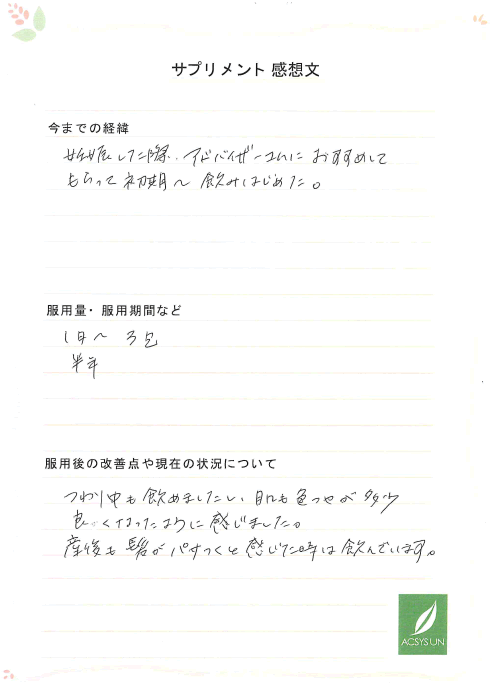 サプリメント 感想文
今までの経緯
妊娠した際、アドバイザーさんに おすすめして
もらって 初期〜 飲みはじめた。
服用量・服用期間など
1日〜 3包
半年
服用後の改善点や現在の状況について
つわり中も 飲めましたし、肌も色つやが 多少
良くなったように 感じました。
産後も 髪が パサつくと 感じた時は 飲んでいます。
ACSYSUN